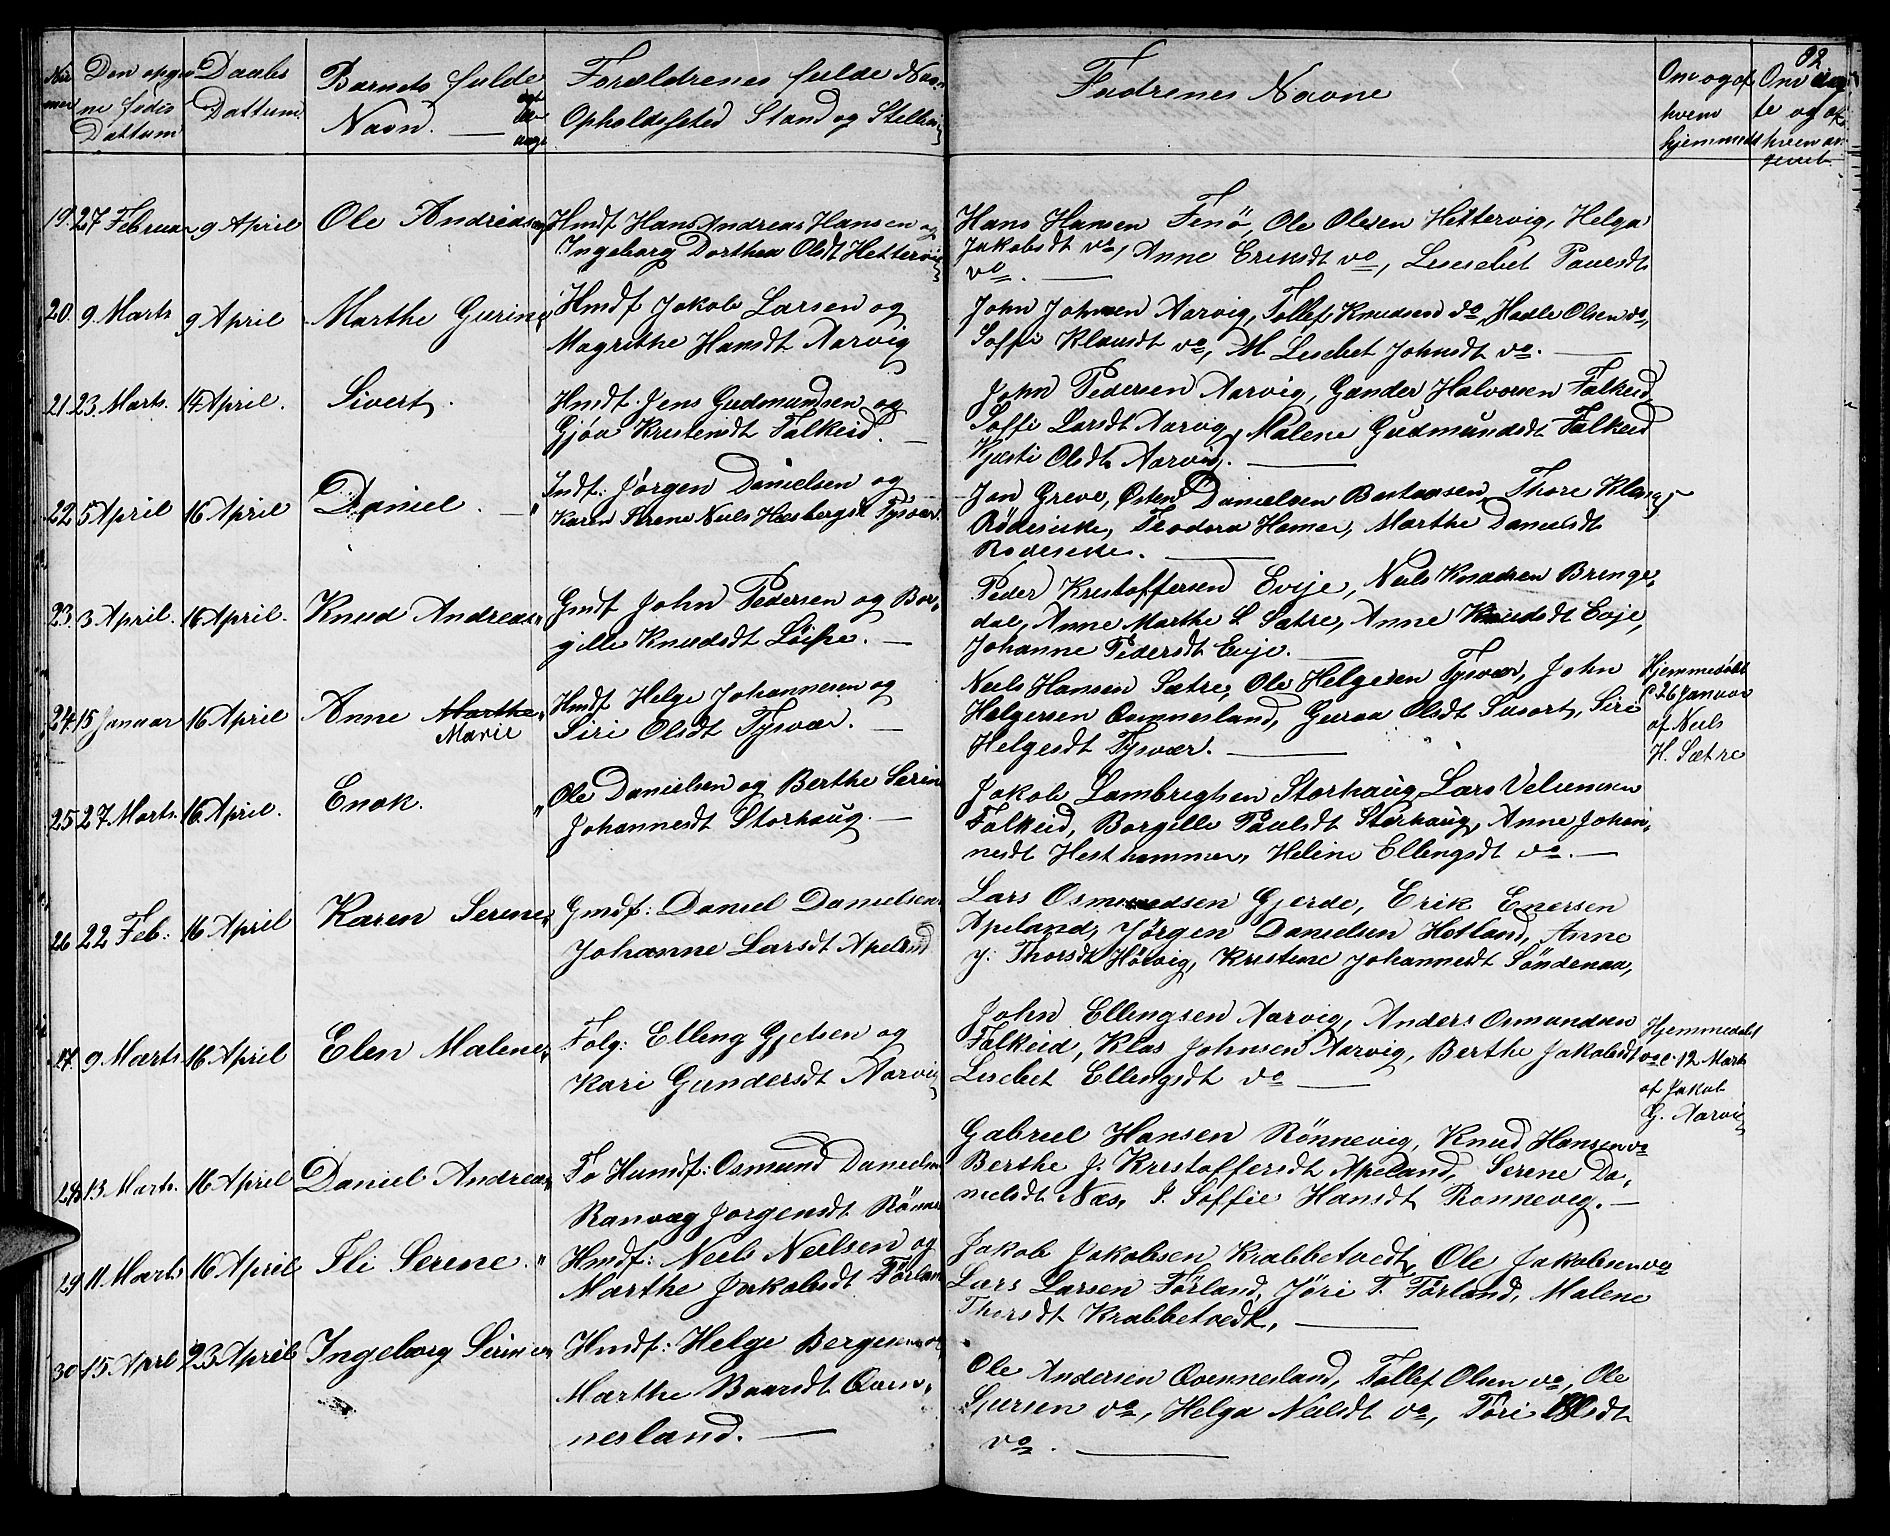 22
Den opgivne fødte Dattum
Daabs Dattum
Barnets fulde Navn. —
Forældrenes fulde Navn
Opholdssted Stand og Stilling
Fadrenes Navne
Om og af hvem hjemmedøbt
19. 27 Februar 9 April Ole Andreas
Hmdf Hans Andreas Hansen og
Ingeborg Dorthea Olsdt Hettervig
Hans Hansen Fenö, Ole Olsen Hettervig, Helga
Jakobsdt do, Anne Eriksdt do, Lesesebet Pauesdt
do. —
20. 9 Marts 9 April Marthe Gurine
Hmdf Jakob Larsen og
Magrithe Hansdt Aarvig
John Johnsen Aarvig, Tollef Knudsen do, Hadle Olsen do,
Soffi Klausdt do, M Lesebet Johnsdt do. —
21 23 Marts. 14 April. Sivert.
Hmdt. Jens Gudmundsen og
Gjøa Kristensdt Falkeid. —
John Pedersen Aarvig, Gunder Halvorsen Falkeid
Soffi Larsdt Aarvig, Malene Gudmundsdt Falkeid
Kjersti Olsdt Aarvig. —
22 5 April 16 April Daniel. —"
Indf: Jörgen Danielsen og
Karen Serene Neils Hesbergsdt Tysvær
Jan Greve, Østen Danielsen Bastiansen, Thore Klang
Rödesike, Teodora Hamer, Marthe Danielsdt
Rodesike. —
23. 3 April. 16 April. Knud Andreas "
Gmdf John Pedersen og Bor-
gille Knudsdt Leife. —
Peder Kristoffersen Evje, Neils Knudsen Bringe-
dal, Anne Marthe L Sætre, Anne Knudsdt Evje,
Johanne Pedersdt Evje. —
24. 15 Januar 16 April Anne Marthe Marie
Hmdf Helge Johannesen og
Siri Olsdt Tysvær. —
Neils Hansen Sætre, Ole Helgesen Tysvær, John
Helgersen Ovennesland, Guroa Olsdt Susort, Siri
Helgesdt Tysvær. —
Hjemmedøbt
26 Januar
af Neils
H. Sætre
25 27 Marts. 16 April. Enok. "
Ole Danielsen og Berthe Serin
Johannesdt Storhaug. —
Jakob Lambregtsen Storhaug Lars Velumsen
Falkeid, Borgille Paulsdt Storhaug, Anne Johan-
nesdt Hesthammer, Heline Ellengsdt do. —
26 22 Feb: 16 April Karen Serine "
Gmdf: Daniel Danielsen
Johanne Larsdt Apeland
Lars Osmundsen Gjerde, Erik Enersen
Apeland, Jörgen Danielsen Hetland, Anne
J: Thorsdt Hövig, Kristine Johannesdt Söndenaa,
27. 9 Marts 16 April Elen Malene "
Folg: Elling Gjetsen og
Kari Gundersdt Aarvig
John Ellengsen Aarvig, Anders Osmundsen
Falkeid, Klas Johnsen Aarvig, Berthe Jakobsdt do
Lesebet Ellengsdt do —
Hjemmedøbt
12 Marts
af Jakob
G. Aarvig
28 13 Marts. 16 April Daniel Andreas "
Fo Humdf: Osmund Danielsen
Ranvag Jorgensdt Rönnev
Gabriel Hansen Rönnevig, Knud Hansen do
Berthe J. Kristoffersdt Apeland, Serene Da-
nielsdt Næs, S. Soffie Hansdt Ronneveg. —
29 11 Marts 16 April Eli Serene. "
Hmdf: Neils Neilsen og
Marthe Jakobsdt Förland
Jakob Jakobsen Krabbetvedt, Ole Jakobsen do
Lars Larsen Förland, Jöri T. Förland, Malene
Thorsdt Krabbetvedt, —
30 15 April 23 April Ingeborg Serine
Hmdf: Helge Bergesen og
Marthe Baardt Oven-
nesland. —
Ole Andersen Ovennesland, Tollef Olsen do, Ole
Sjursen do, Helga Neilsdt do, Tori Olsdt
do. —